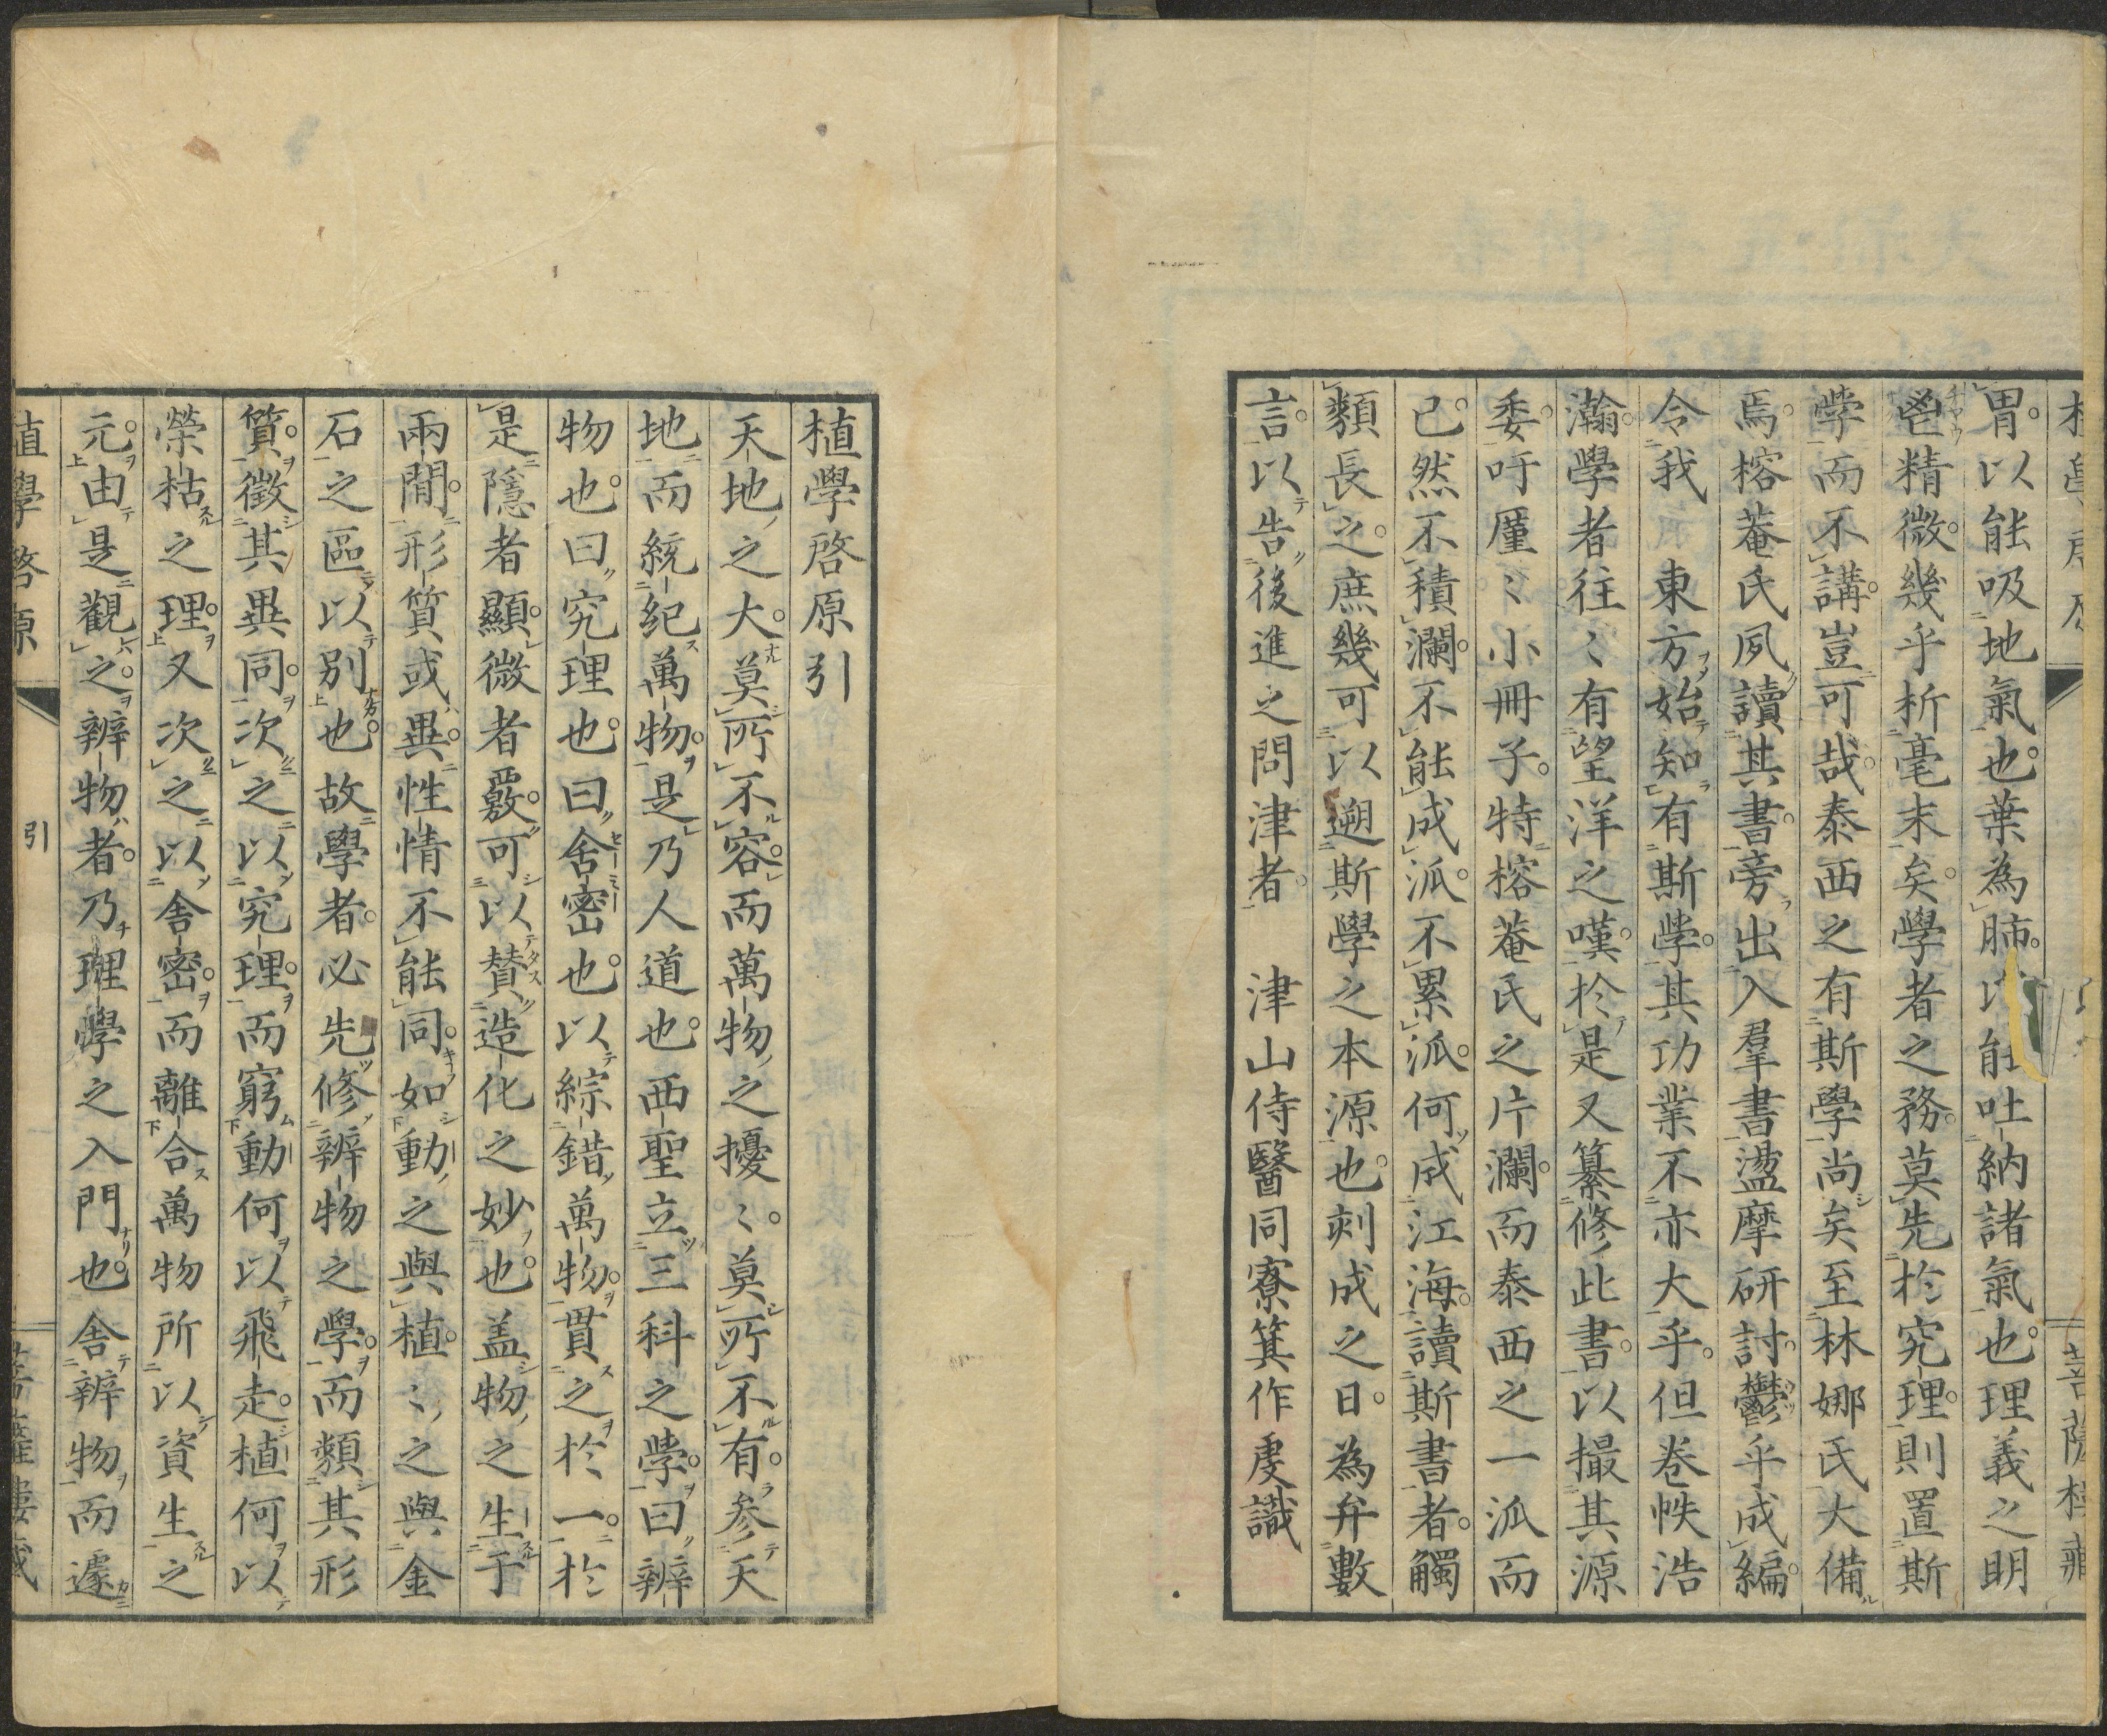 胃以能吸地氣也葉為肺以能吐納諸氣也理義之明
鬯精微幾乎析毫末矣學者之務莫先於究理則置斯
學而不講豈可哉泰西之有斯學尚矣至林娜氏大備
焉榕菴氏夙讀其書旁出入羣書盪摩研討鬱乎成編
令我　東方始知有斯學其功業不亦大乎但卷帙浩
瀚學者往〻有望洋之嘆於是又纂修此書以撮其源
委吁厪〻小冊子特榕菴氏之片瀾而泰西之一泒而
已然不積瀾不能成泒不累泒何成江海讀斯書者觸
類長之庶幾可以遡斯學之本源也刻成之日為弁數
言以告後進之問津者　津山侍醫同寮箕作虔識
植學啓原引
天地之大莫所不容而萬物之擾〻莫所不有參天
地而統紀萬物是乃人道也西聖立三科之學曰辨
物也曰究理也曰舍密也以綜錯萬物貫之於一於
是隱者顯微者覈可以贊造化之妙也盖物之生于
兩間形質或異性情不能同如動之與植〻之與金
石之區以別也故學者必先修辨物之學而類其形
質徵其異同次之以究理而窮動何以飛走植何以
榮枯之理又次之以舍密而離合萬物所以資生之
元由是觀之辨物者乃理學之入門也舍辨物而遽
植學啓原
引